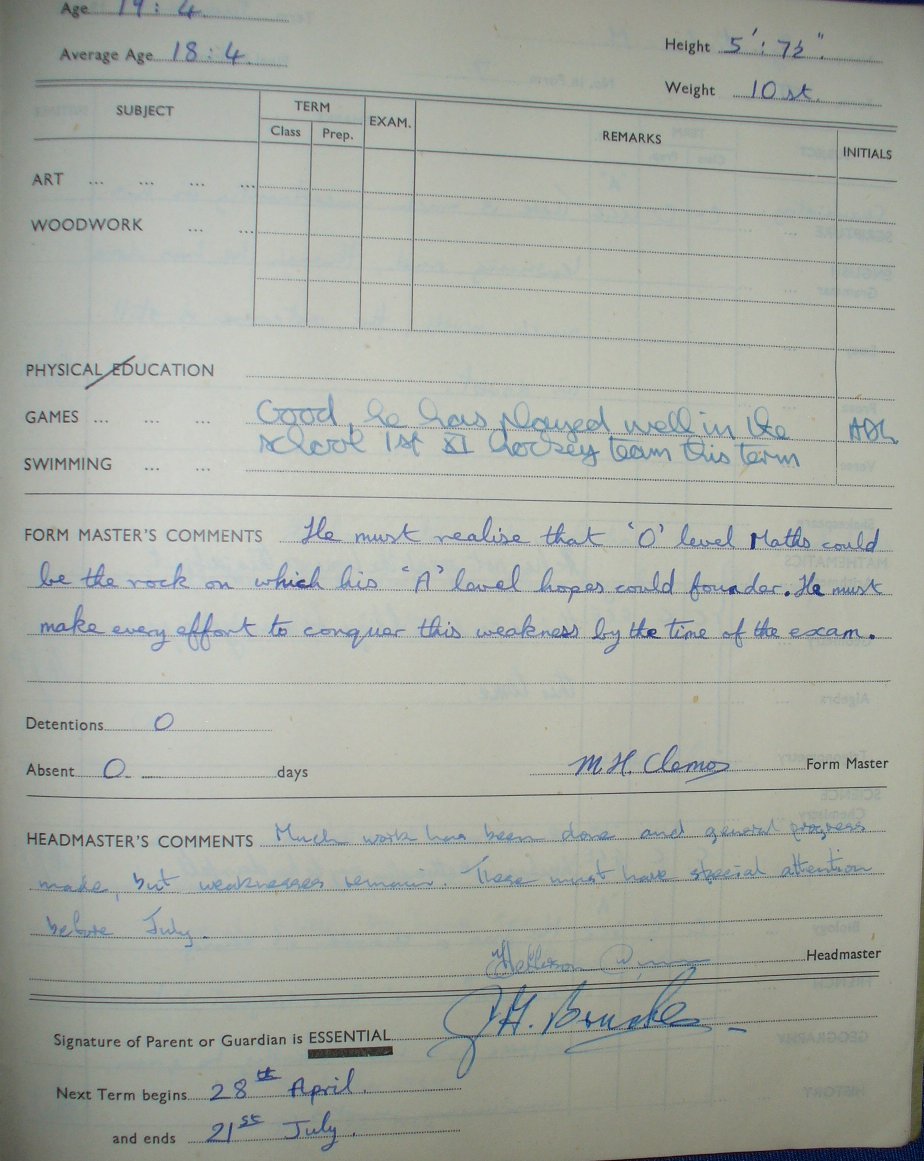 Age 19 : 4.
Average Age 18 : 4.
Height 5' : 7½".
Weight 10 st.
SUBJECT TERM EXAM. REMARKS INITIALS
Class Prep.
ART ... ... ... ...
WOODWORK ... ...
PHYSICAL EDUCATION
GAMES ... ... ... Good, he has played well in the
school 1st XI hockey team this term
SWIMMING ... ...
FORM MASTER'S COMMENTS He must realise that 'O' level Maths could
be the rock on which his 'A' level hopes could founder. He must
make every effort to conquer this weakness by the time of the exam.
Detentions 0
Absent 0 days
M.H. Clemos Form Master
HEADMASTER'S COMMENTS Much work has been done and general progress
made, but weaknesses remain. These must have special attention
before July.
Headmaster
Signature of Parent or Guardian is ESSENTIAL J.H.
Next Term begins 28th April.
and ends 21st July.